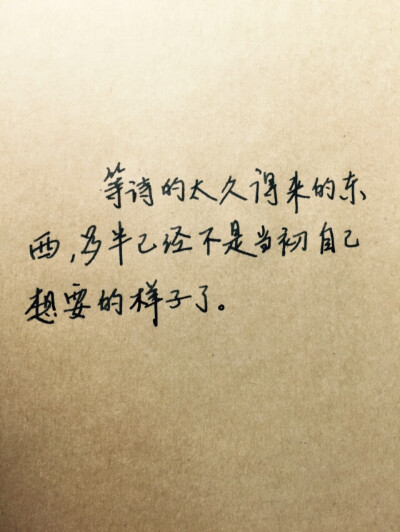 等待的太久得来的东
西，多半已经不是当初自己
想要的样子了。